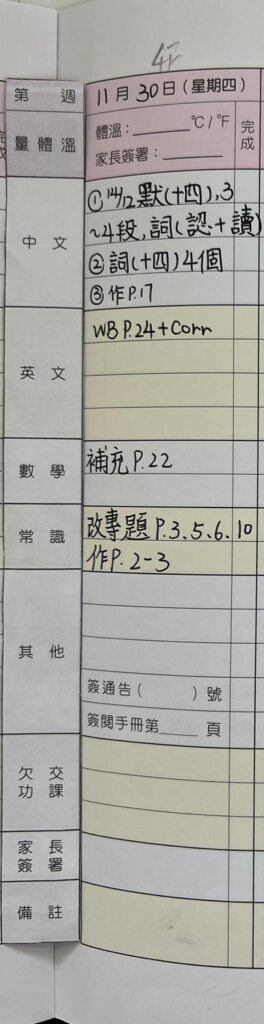 第 週
11月30日(星期四)
量體溫
體溫：______℃/℉
家長簽署：______
完成
中文
① 14/12 默(十四),3
~4段,詞(認+讀)
② 詞(十四)4個
③ 作P.17
英文
WB P.24+Corr
數學
補充 P.22
常識
改專題 P.3、5、6、10
作P. 2-3
其他
簽通告( )號
簽閱手冊第____頁
欠交功課
家長簽署
備註